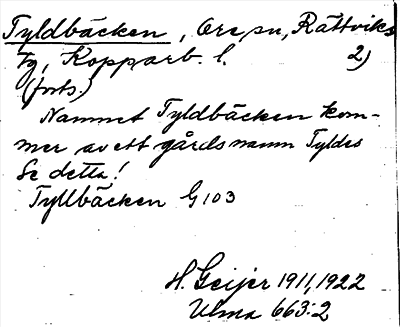 Tyldbäcken, Ore sn, Rättviks
tg, Kopparb. l. 2)
(forts.)
Namnet Tyldbäcken kom-
mer av ett gårdsnamn Tyldes
Se detta!
Tyllbäcken G103
H. Geijer 1911, 1922
Ulma 663:2